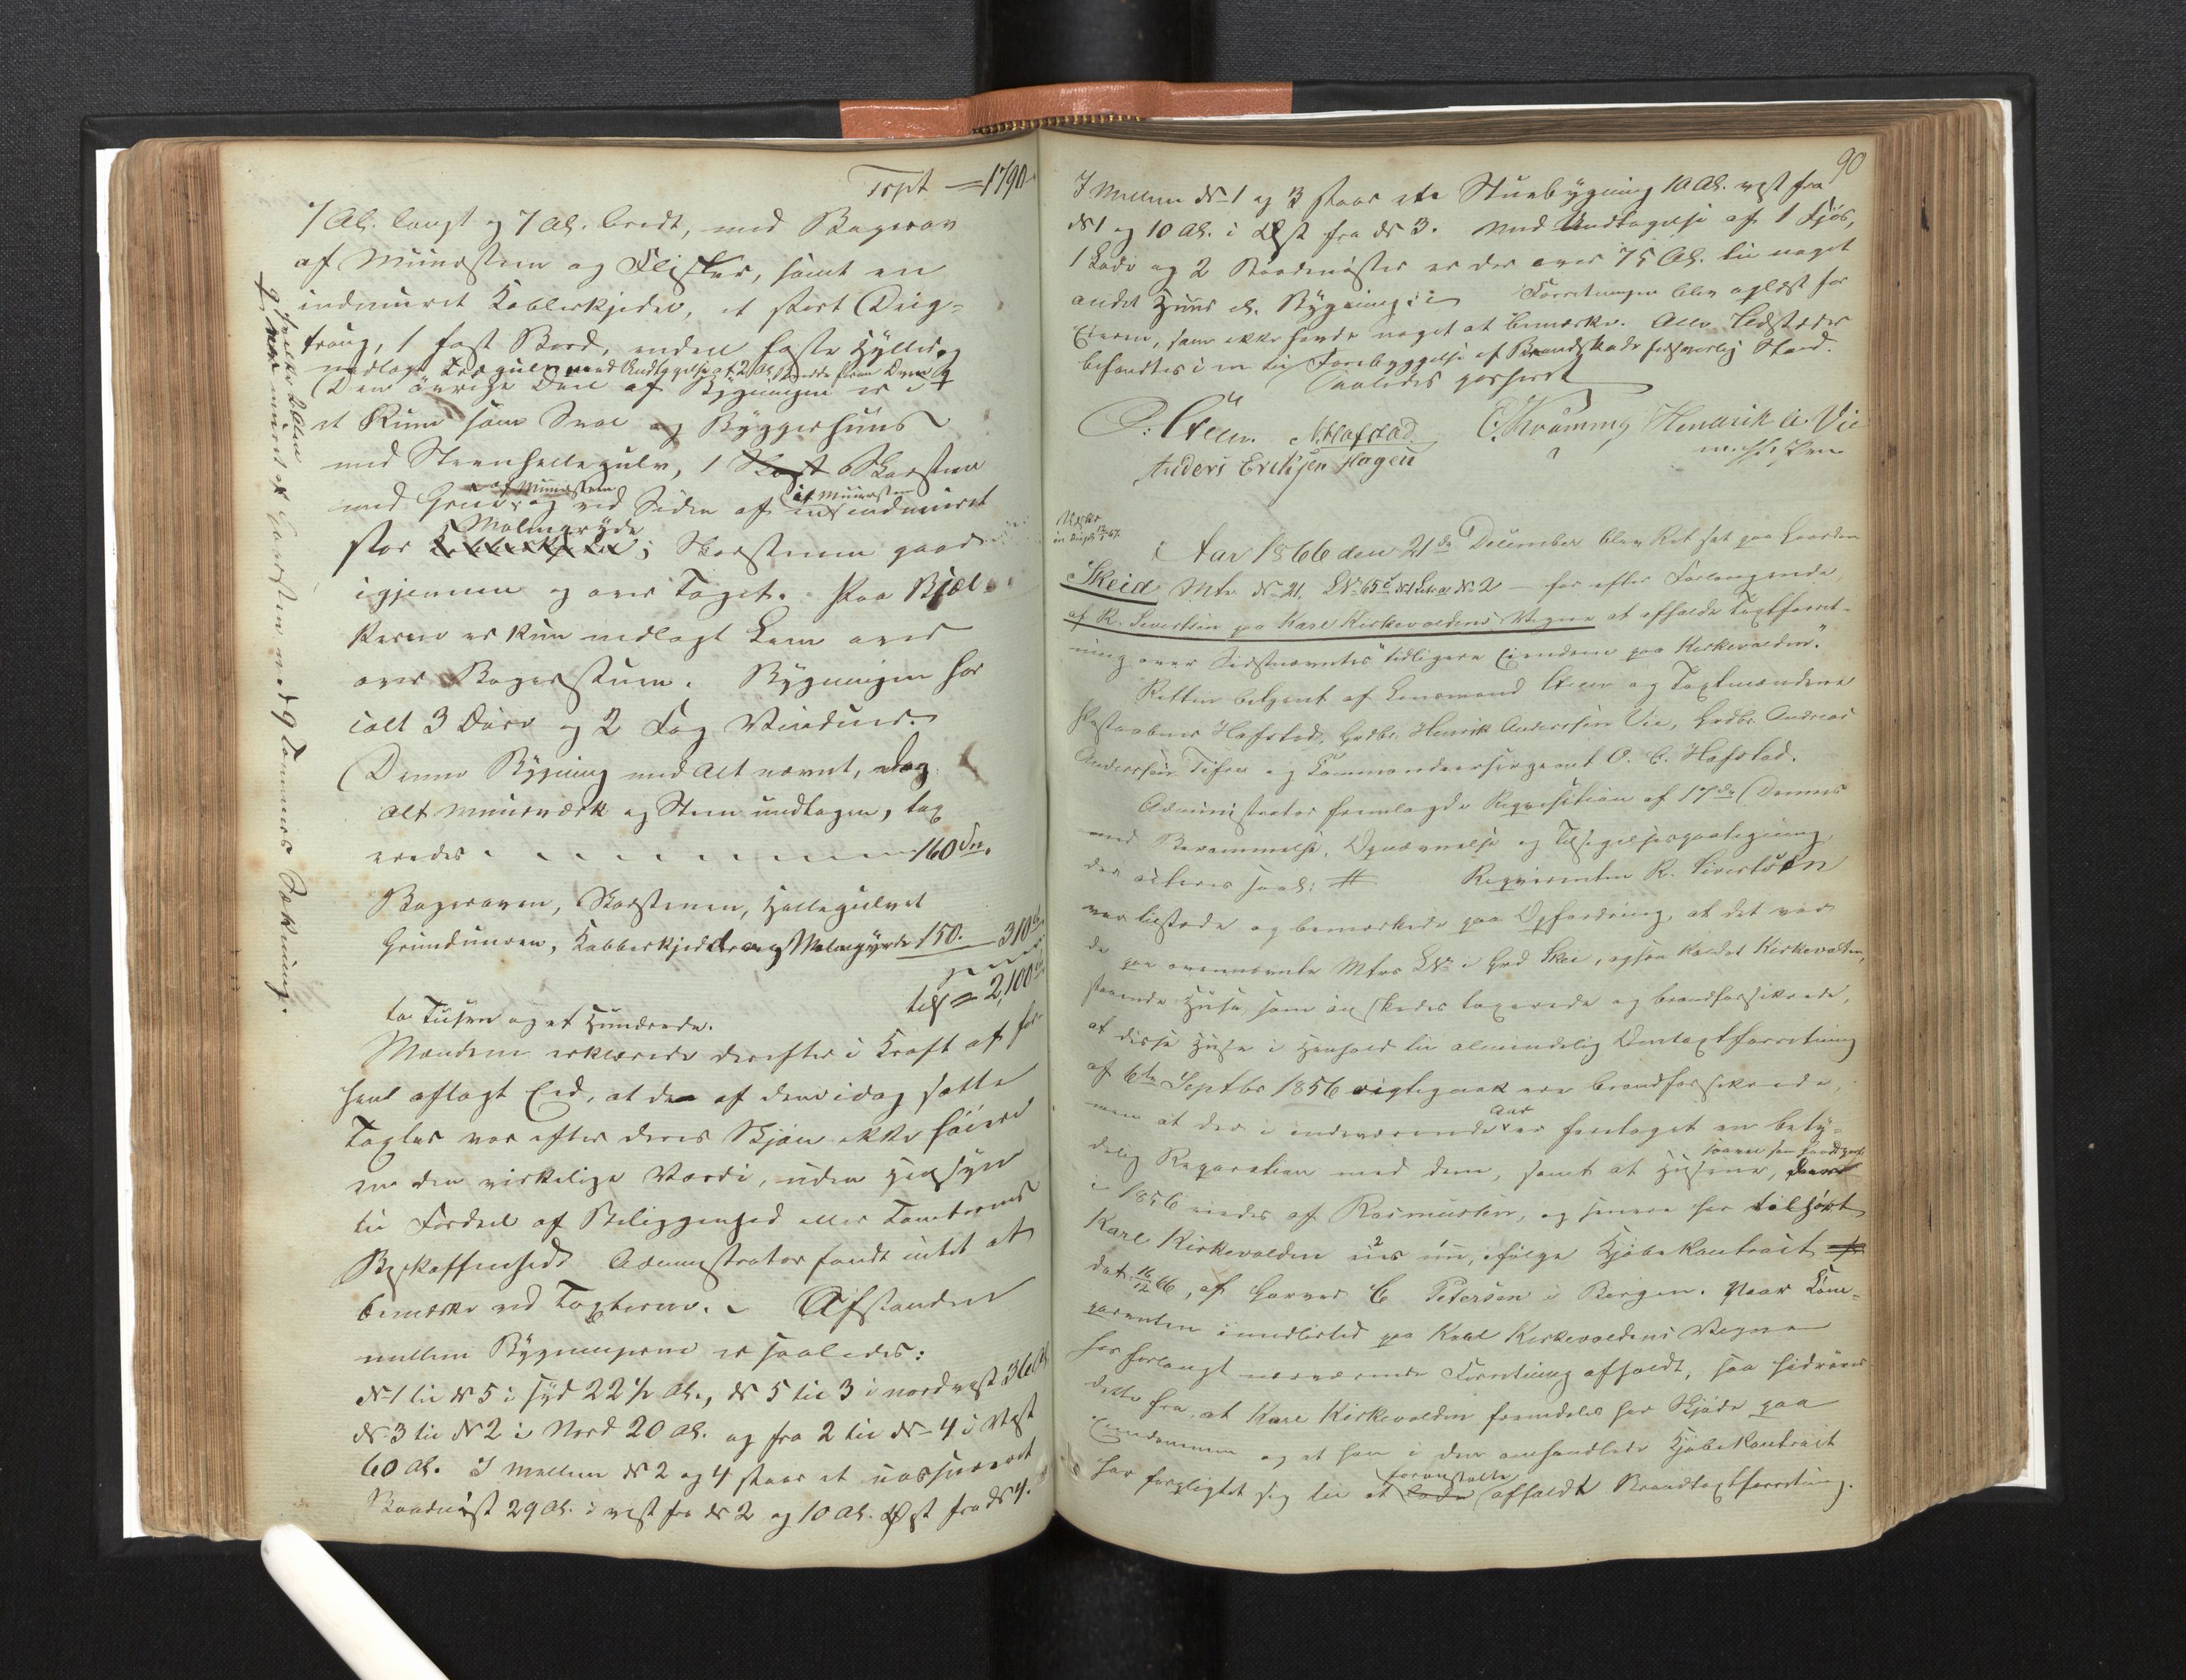 Trspt = 1790
7 Al. langt og 7 Al. bredt, med Bagerovn
af Muursteen og Fliser, samt en
indmuret Kobberkjedel, et stort Deig-
traug, 1 fast Bord, endeel faste Hylder og
nedlagt Trægulv med Undtagelse af 2 Al.
Den øvrige Deel af Bygningen er i
et Rum som Sval og Byggerhuus
med Steenhellegulv, 1 Skorsteen
med Grue af Muursteen og ved Siden af en af Muursteen indmuret
stor Malmgryde; Skorstenen gaar
igjennem og over Taget. Paa Bjæl-
kerne er kun nedlagt Lem over
over Bagerstuen. Bygningen har
ialt 3 Døre og 2 Fag Vinduer.
Denne Bygning med Alt nævnt, dog
alt Muurværk og Steen undtagen, tax
eredes . . . . . . . 160 Spd.
Bagerovnen, Skorstenen, Hellegulvet
Grundmuren, Kobberkjedelen og Malmgryde 150. — 310
tils = 2,100
to Tusen og et Hundrede.
Mændene erklærede derefter i Kraft af før
hen aflagt Eed, at den af dem idag satte
Taxt var efter deres Skjøn ikke høiere
en den virkelige Værdi, uden Hensyn
til Fordeel af Beliggenhed eller Tomternes
Beskaffenhed. Administrator fandt intet at
bemærke ved Taxterne. Afstanden
mellem Bygningerne er saaledes:
N-1 til N 5 i Syd 22½ Al., N 5 til 3 i nordvest 36 Al.
N-3 til N 2 i Nord 20 Al. og fra 2 til N-4 i Vest
60 Al. I mellem N 2 og 4 staar et uassureret
Baadnøst 29 Al. i vest fra N 2 og 10 Al. Øst fra N 4.
muret af Guulsteen med 9 Tommers Dækning.
90
I Mellem N-1 og 3 staar ete Stuebygning 10 Al. vest fra
N 1 og 10 Al. i Øst fra N 3. Med Undtagelse af 1 Fjøs,
1 Lade og 2 Baadenøster er der over 75 Al. til noget
andet Huus el. Bygning. Forretningen blev oplæst for
Eieren, som ikke havde noget at bemærke. Alle Ildsteder
befandtes i en til Forebyggelse af Brandskade forsvarlig Stand.
Saaledes passeret
N. Hafstad Hendrik A. Vie
Anders Eriksen Hagen m. p. Pen
Aar 1866 den 21de December blev Ret sat paa Gaarden
Skeid Mtr. N-21. LN 65 N 2 — for efter Forlangende
af R. Sivertsen paa Karl Kirkevoldens Vegne at afholde Taxtforret-
ning over Sidstnævntes tidligere Eiendom paa "Kirkevolden".
Retten betjent af Lensmand Steen og Taxtmændene
Postaabner Hafstad, Grdbr. Henrik Anderssen Vie, Grdbr. Andreas
Anderssen Tefre og Commandeersergeant O. E. Hafstad.
Administrator fremlagde Reqvisition af 17de Dennes
med Berammelse, Opnævnelse og Tilsigelsespaategning
der acteres saal: # Reqvirenten R. Sivertsen
var tilstede og bemærkede paa Opfordring, at det var
de paa ovennævnte Mtrs LNr i Grd Skei, ogsaa kaldet Kirkevolden,
staaende Huse som ønskedes taxerede og brandforsikrede,
at disse Huse i Henhold til almindelig Omtaxtforretning
af 6te Septbr 1856 rigtignok ere brandforsikrede,
men at der i indeværende Aar er foretaget en bety-
delig Reparation med dem, samt at Husene,
i 1856 eiedes af Rasmussen, og senere har tilhørt
Karl Kirkevolden 2 1, ifølge Kjøbekontrakt
dat. 16/12 66, af Garver C Petersen i Bergen. Naar Com-
parenten imidlertid paa Karl Kirkevoldens Vegne
har forlangt nærværende Forretning afholdt, saa hidrører
dette fra, at Karl Kirkevolden fremdeles har Skjøde paa
Eiendommen og at han i den omhandlede Kjøbekontrakt
har forpligtet sig til at foranstalte afholdt Brandtaxtforretning.